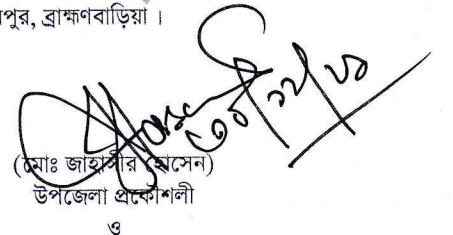 পুর, ব্রাহ্মণবাড়িয়া ।
(মোঃ জাহাঙ্গীর হোসেন)
উপজেলা প্রকৌশলী
ও